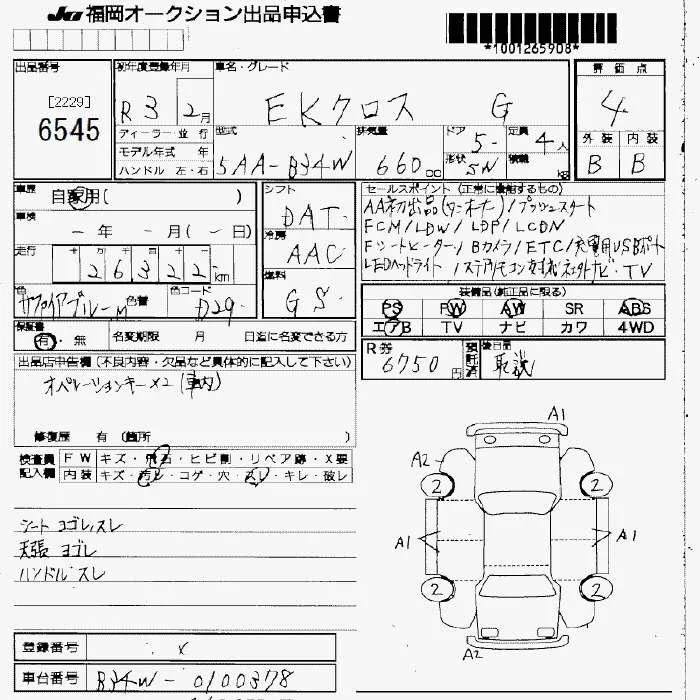 JU 福岡オークション出品申込書
*1001265908*
出品番号
[2229]
6545
初年度登録年月
R 3 2月
車名・グレード
EKクロス G
評価点
4
外装 内装
B B
ディーラー・並行
モデル年式 年
ハンドル 左・右
型式
5AA-B34W
排気量
660 cc
ドア
5-
形状
5N
定員
4人
積載
kg
車歴
自家用( )
車検
- 年 - 月(- 日)
走行
26322km
色
サファイアブルーM
色替
色コード
D29
シフト
DAT
冷房
AAC
燃料
GS
セールスポイント (正常に登録するもの)
AA初出品(ワンオーナー)/プッシュスタート
FCM/LDW/LDP/LCDN
Fシートヒーター/Bカメラ/ETC/充電用USBポート
LEDヘッドライト/ステアリモコン ナビ・TV
装備品(純正品に限る)
PS PW AW SR ABS
エアB TV ナビ カワ 4WD
保証書
有・無
名変期限 月 日迄に名変できる方
R券
6750円
預託済
後日品
取説
出品店申告欄(不良内容・欠品など具体的に記入して下さい)
オペレーションキー×2(車内)
修復歴 有(箇所 )
検査員記入欄
FW キズ・飛石・ヒビ割・リペア跡・X要
内装 キズ・汚レ・コゲ・穴・スレ・キレ・破レ
シート ヨゴレ,スレ
天張 ヨゴレ
ハンドル スレ
A1
A2
2 2
A1 A1
2 2
A2
登録番号
x
車台番号
B34W-0100378